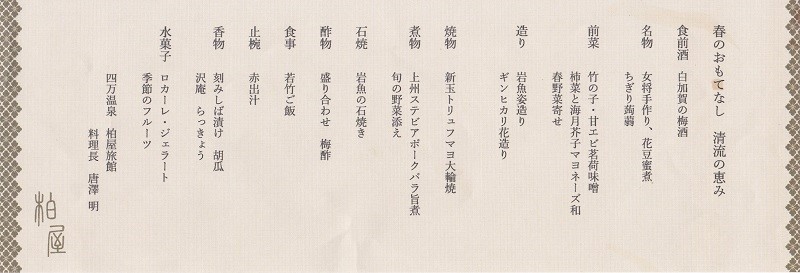 春のおもてなし　清流の恵み
食前酒　白加賀の梅酒
名物　女将手作り、花豆蜜煮
ちぎり蒟蒻
前菜　竹の子・甘エビ茗荷味噌
柿菜と海月芥子マヨネーズ和
春野菜寄せ
造り　岩魚姿造り
ギンヒカリ花造り
焼物　新玉トリュフマヨ大輪焼
煮物　上州ステビアポークバラ旨煮
旬の野菜添え
石焼　岩魚の石焼き
酢物　盛り合わせ　梅酢
食事　若竹ご飯
止椀　赤出汁
香物　刻みしば漬け　胡瓜
沢庵　らっきょう
水菓子　ロカーレ・ジェラート
季節のフルーツ
四万温泉　柏屋旅館
料理長　唐澤　明
柏屋